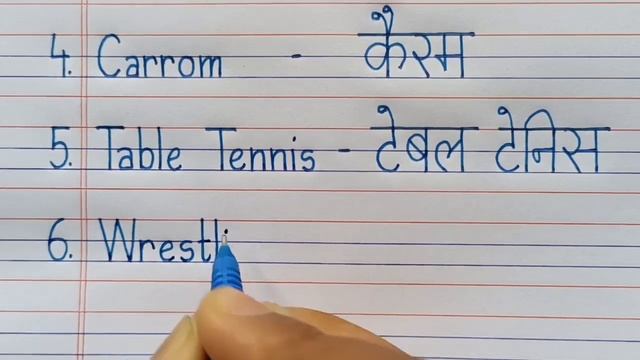 4. Carrom - कैरम
5. Table Tennis - टेबल टेनिस
6. Wrestli